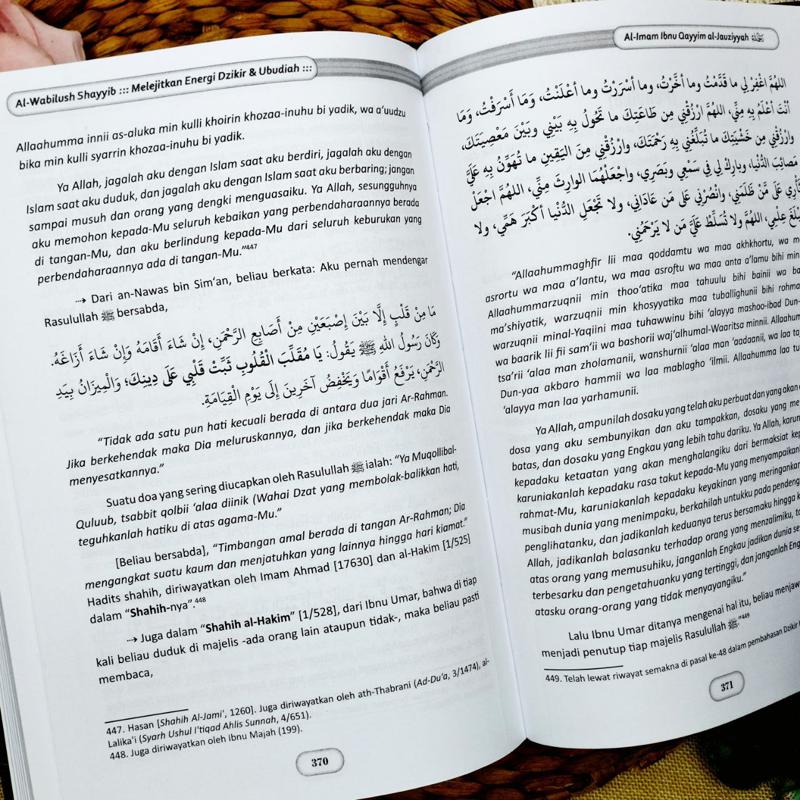 Al-Wabilush Shayyib ::: Melejitkan Energi Dzikir & Ubudiah :::
Allaahumma innii as-aluka min kulli khoirin khozaa-inuhu bi yadik, wa a'uudzu
bika min kulli syarrin khozaa-inuhu bi yadik.
Ya Allah, jagalah aku dengan Islam saat aku berdiri, jagalah aku dengan
Islam saat aku duduk, dan jagalah aku dengan Islam saat aku berbaring; jangan
sampai musuh dan orang yang dengki menguasaiku. Ya Allah, sesungguhnya
aku memohon kepada-Mu seluruh kebaikan yang perbendaharaannya berada
di tangan-Mu, dan aku berlindung kepada-Mu dari seluruh keburukan yang
perbendaharaannya ada di tangan-Mu."447
⇢ Dari an-Nawas bin Sim'an, beliau berkata: Aku pernah mendengar
Rasulullah ﷺ bersabda,
مَا مِنْ قَلْبٍ إِلَّا بَيْنَ إِصْبَعَيْنِ مِنْ أَصَابِعِ الرَّحْمَنِ، إِنْ شَاءَ أَقَامَهُ وَإِنْ شَاءَ أَزَاغَهُ.
وَكَانَ رَسُولُ اللهِ ﷺ يَقُولُ: يَا مُقَلِّبَ الْقُلُوبِ ثَبِّتْ قَلْبِي عَلَى دِينِكَ؛ وَالْمِيْزَانُ بِيَدِ
الرَّحْمَنِ، يَرْفَعُ أَقْوَامًا وَيَخْفِضُ آخَرِينَ إِلَى يَوْمِ الْقِيَامَةِ.
"Tidak ada satu pun hati kecuali berada di antara dua jari Ar-Rahman.
Jika berkehendak maka Dia meluruskannya, dan jika berkehendak maka Dia
menyesatkannya."
Suatu doa yang sering diucapkan oleh Rasulullah ﷺ ialah: "Ya Muqollibal-
Quluub, tsabbit qolbii 'alaa diinik (Wahai Dzat yang membolak-balikkan hati,
teguhkanlah hatiku di atas agama-Mu."
[Beliau bersabda], "Timbangan amal berada di tangan Ar-Rahman; Dia
mengangkat suatu kaum dan menjatuhkan yang lainnya hingga hari kiamat."
Hadits shahih, diriwayatkan oleh Imam Ahmad [17630] dan al-Hakim [1/525]
dalam "Shahih-nya".448
⇢ Juga dalam "Shahih al-Hakim" [1/528], dari Ibnu Umar, bahwa di tiap
kali beliau duduk di majelis -ada orang lain ataupun tidak-, maka beliau pasti
membaca,
447. Hasan [Shahih Al-Jami', 1260]. Juga diriwayatkan oleh ath-Thabrani (Ad-Du'a, 3/1474), al-
Lalika'i (Syarh Ushul I'tiqad Ahlis Sunnah, 4/651).
448. Juga diriwayatkan oleh Ibnu Majah (199).
370
Al-Imam Ibnu Qayyim al-Jauziyyah
اللهُمَّ اغْفِرْ لِي ما قَدَّمْتُ وما أَخَّرْتُ، وما أَسْرَرْتُ وما أَعْلَنْتُ، وَمَا أَسْرَفْتُ، وَمَا
أَنْتَ أَعْلَمُ بِهِ مِنِّي، اللهُمَّ ارْزُقْنِي مِن طَاعَتِكَ ما تَحُولُ بِهِ بَيْنِي وَبَيْنَ مَعْصِيَتِكَ،
وارْزُقْنِي مِن خَشْيَتِكَ ما تُبَلِّغُنِي بِهِ رَحْمَتَكَ، وارْزُقْنِي مِنَ اليَقِينِ ما تُهَوِّنُ بِهِ عَلَيَّ
مَصائِبَ الدُّنْيا، وبارِكْ لِي فِي سَمْعِي وبَصَرِي، واجْعَلْهُما الوارِثَ مِنِّي، اللهُمَّ اجْعَلْ
ثَأْرِي عَلَى مَنْ ظَلَمَنِي، وانْصُرْنِي عَلَى مَن عَادَانِي، ولا تَجْعَلِ الدُّنْيا أَكْبَرَ هَمِّي، ولا
عِلْمِي، اللهُمَّ ولا تُسَلِّطْ عَلَيَّ مَن لا يَرْحَمُنِي.
"Allaahummaghfir lii maa qoddamtu wa maa akhkhortu, wa m
asrortu wa maa a'lantu, wa maa asroftu wa maa anta a'lamu bihi min
Allaahummarzuqnii min thoo'atika maa tahuulu bihi bainii wa ba
ma'shiyatik, warzuqnii min khosyyatika maa tuballighunii bihi rohma
warzuqnii minal-Yaqiini maa tuhawwinu bihi 'alayya mashoo-ibad Dun-
wa baarik lii fii sam'ii wa bashorii waj'alhumal-Waaritsa minnii. Allaahum
tsa'rii 'alaa man zholamanii, wanshurnii 'alaa man 'aadaanii, wa laa ta
Dun-yaa akbaro hammii wa laa mablagho 'ilmii. Allaahumma laa tu
'alayya man laa yarhamunii.
Ya Allah, ampunilah dosaku yang telah aku perbuat dan yang akan
dosa yang aku sembunyikan dan aku tampakkan, dosaku yang me
batas, dan dosaku yang Engkau yang lebih tahu dariku. Ya Allah, karun
kepadaku ketaatan yang akan menghalangiku dari bermaksiat kep
karuniakanlah kepadaku rasa takut kepada-Mu yang menyampaikan
rahmat-Mu, karuniakanlah kepadaku keyakinan yang meringankan
musibah dunia yang menimpaku, berkahilah untukku pada pendeng
penglihatanku, dan jadikanlah keduanya terus bersamaku hingga
Allah, jadikanlah balasanku terhadap orang yang menzalimiku, to
atas orang yang memusuhiku, janganlah Engkau jadikan dunia se
terbesarku dan pengetahuanku yang tertinggi, dan janganlah Eng
atasku orang-orang yang tidak menyayangiku."
Lalu Ibnu Umar ditanya mengenai hal itu, beliau menjaw
menjadi penutup tiap majelis Rasulullah ﷺ."449
449. Telah lewat riwayat semakna di pasal ke-48 dalam pembahasan Dzikir
371